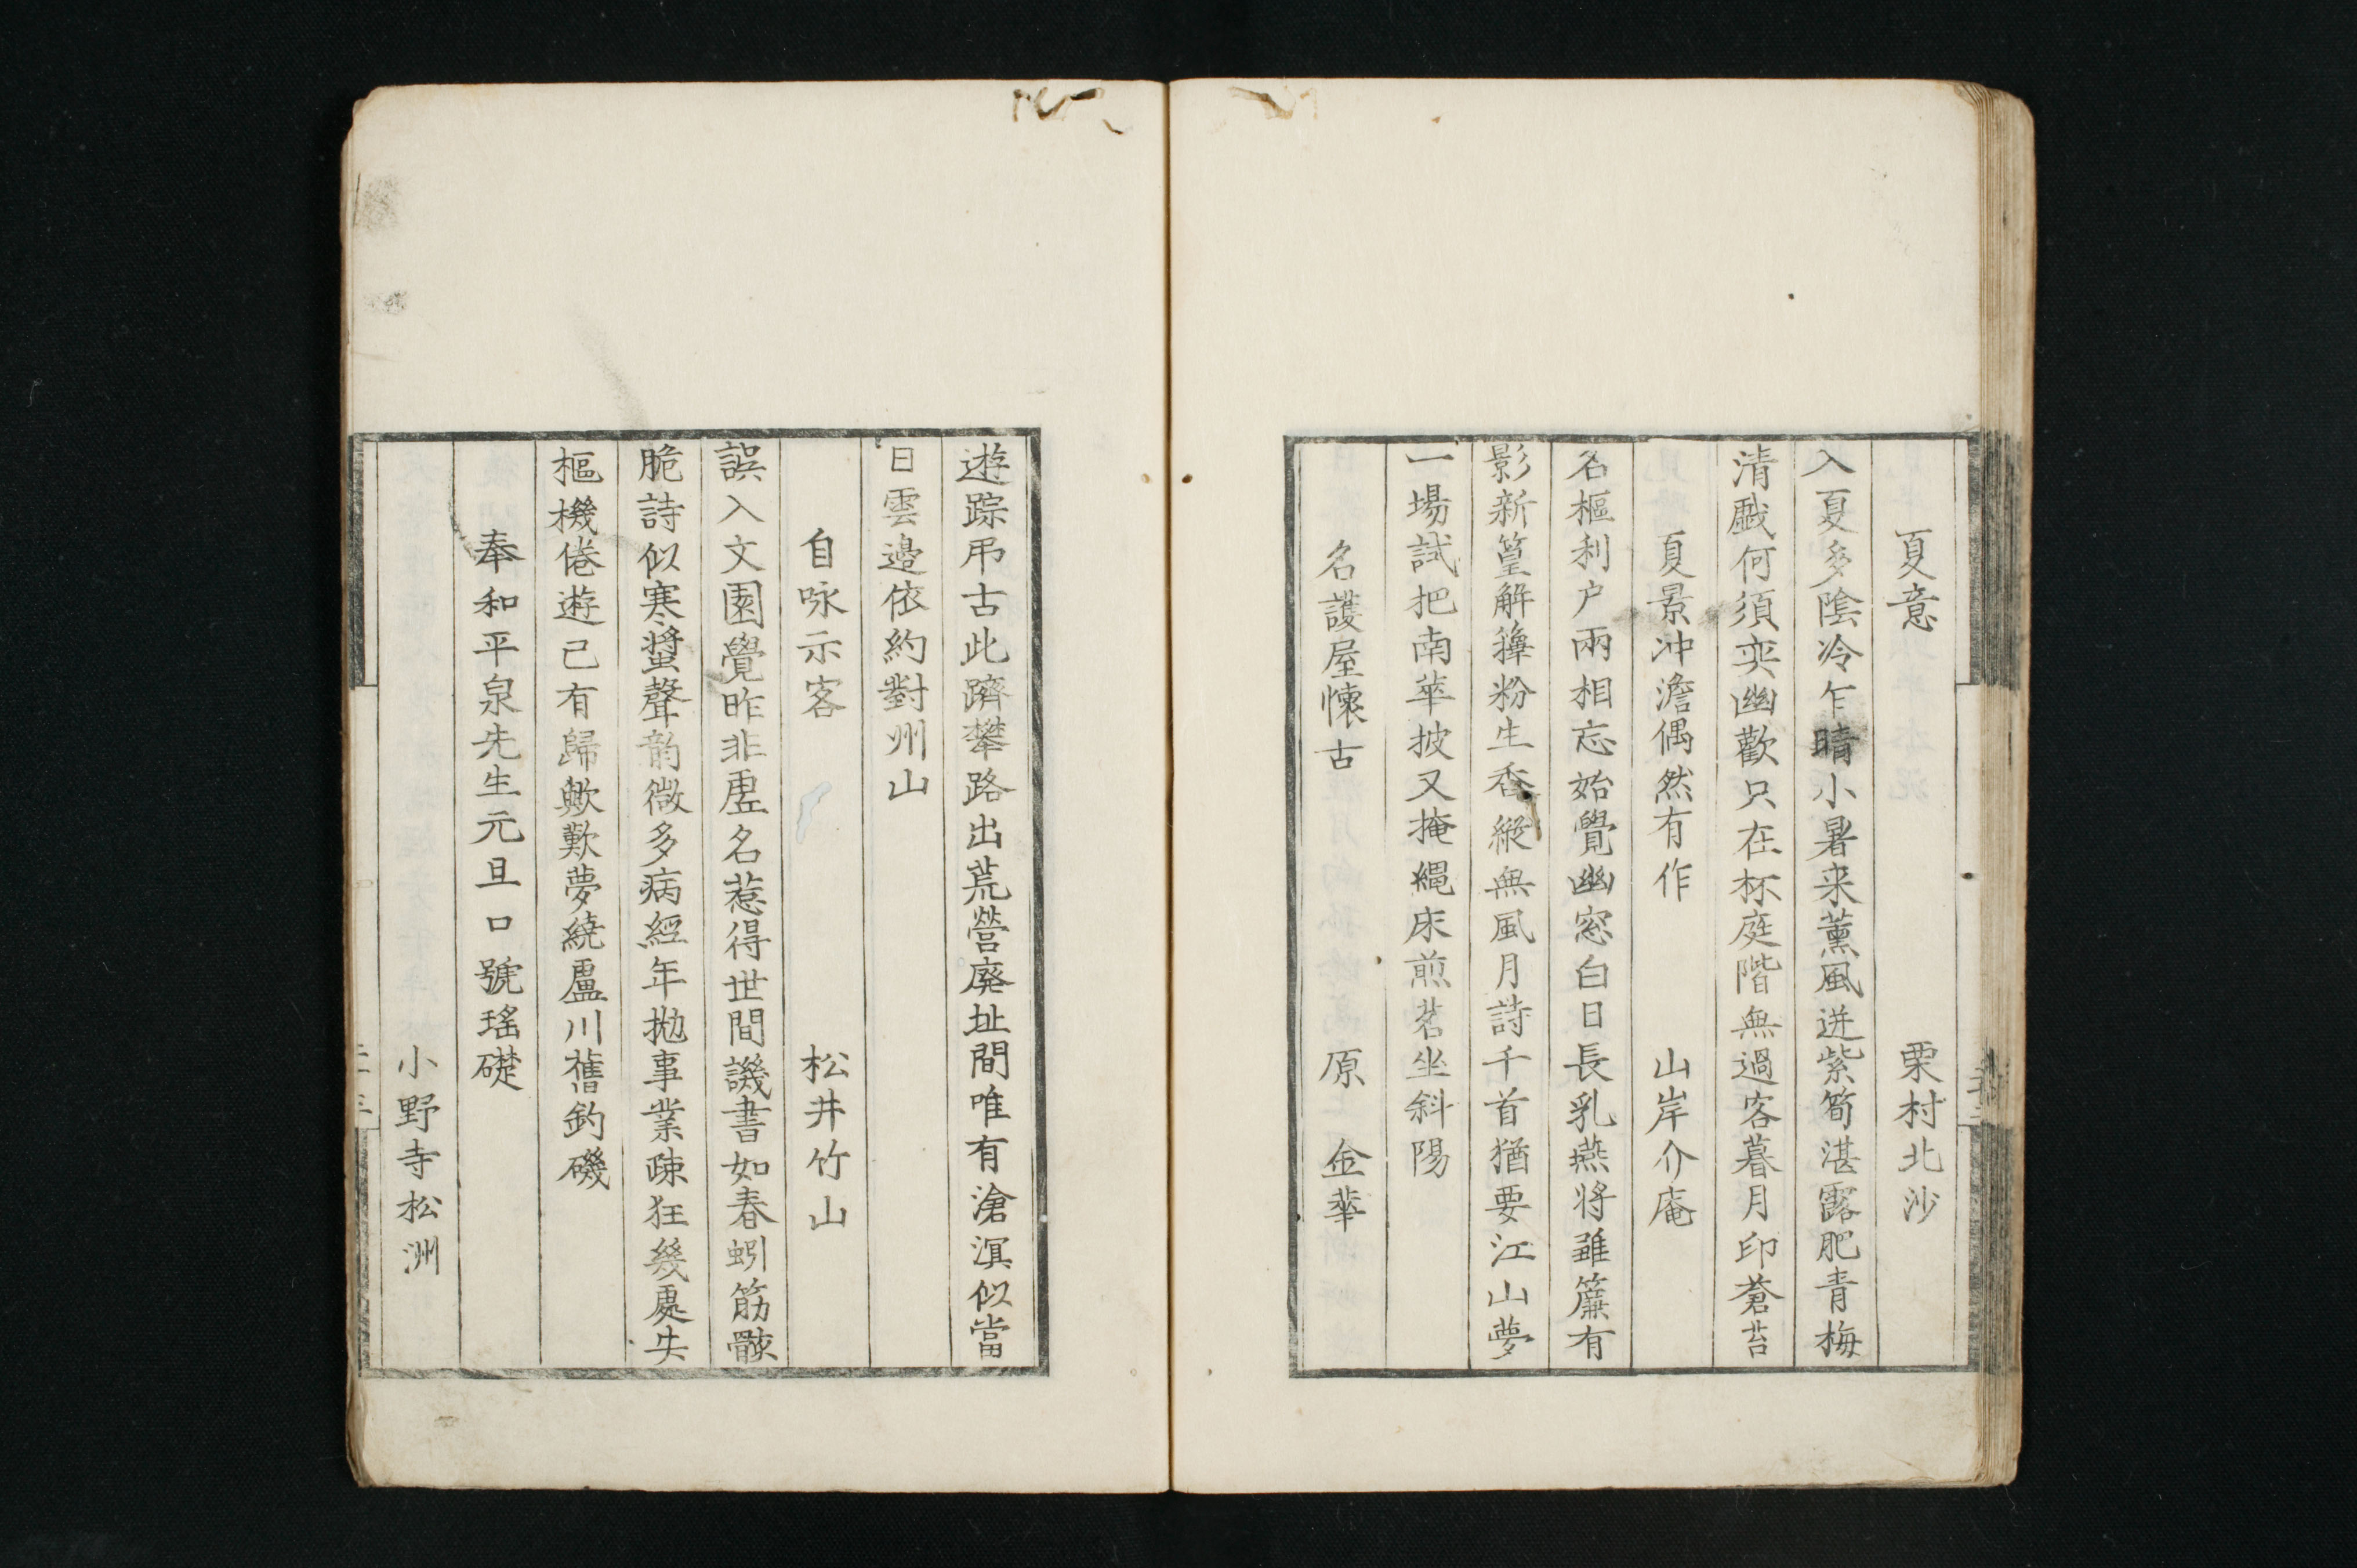 夏意 栗村北沙
入夏多陰冷乍晴小暑来薰風迸紫筍湛露肥青梅
清戯何須奕幽歡只在杯庭階無過客暮月印蒼苔
夏景冲澹偶然有作 山岸介庵
名樞利户兩相忘始覺幽窓白日長乳燕将雖簾有
影新篁解籜粉生香縱無風月詩千首猶要江山夢
一場試把南華披又掩繩床煎茗坐斜陽
名護屋懐古 原 金華
遊踪吊古此躋攀路出荒營廢址間唯有滄溟似當
日雲邉依約對州山
自咏示客 松井竹山
誤入文園覺昨非虚名惹得世間譏書如春蚓筋骸
脆詩似寒螿聲韵微多病經年抛事業疎狂幾處失
樞機倦遊已有歸歟歎夢繞盧川舊釣磯
奉和平泉先生元旦口號瑤礎
小野寺松洲